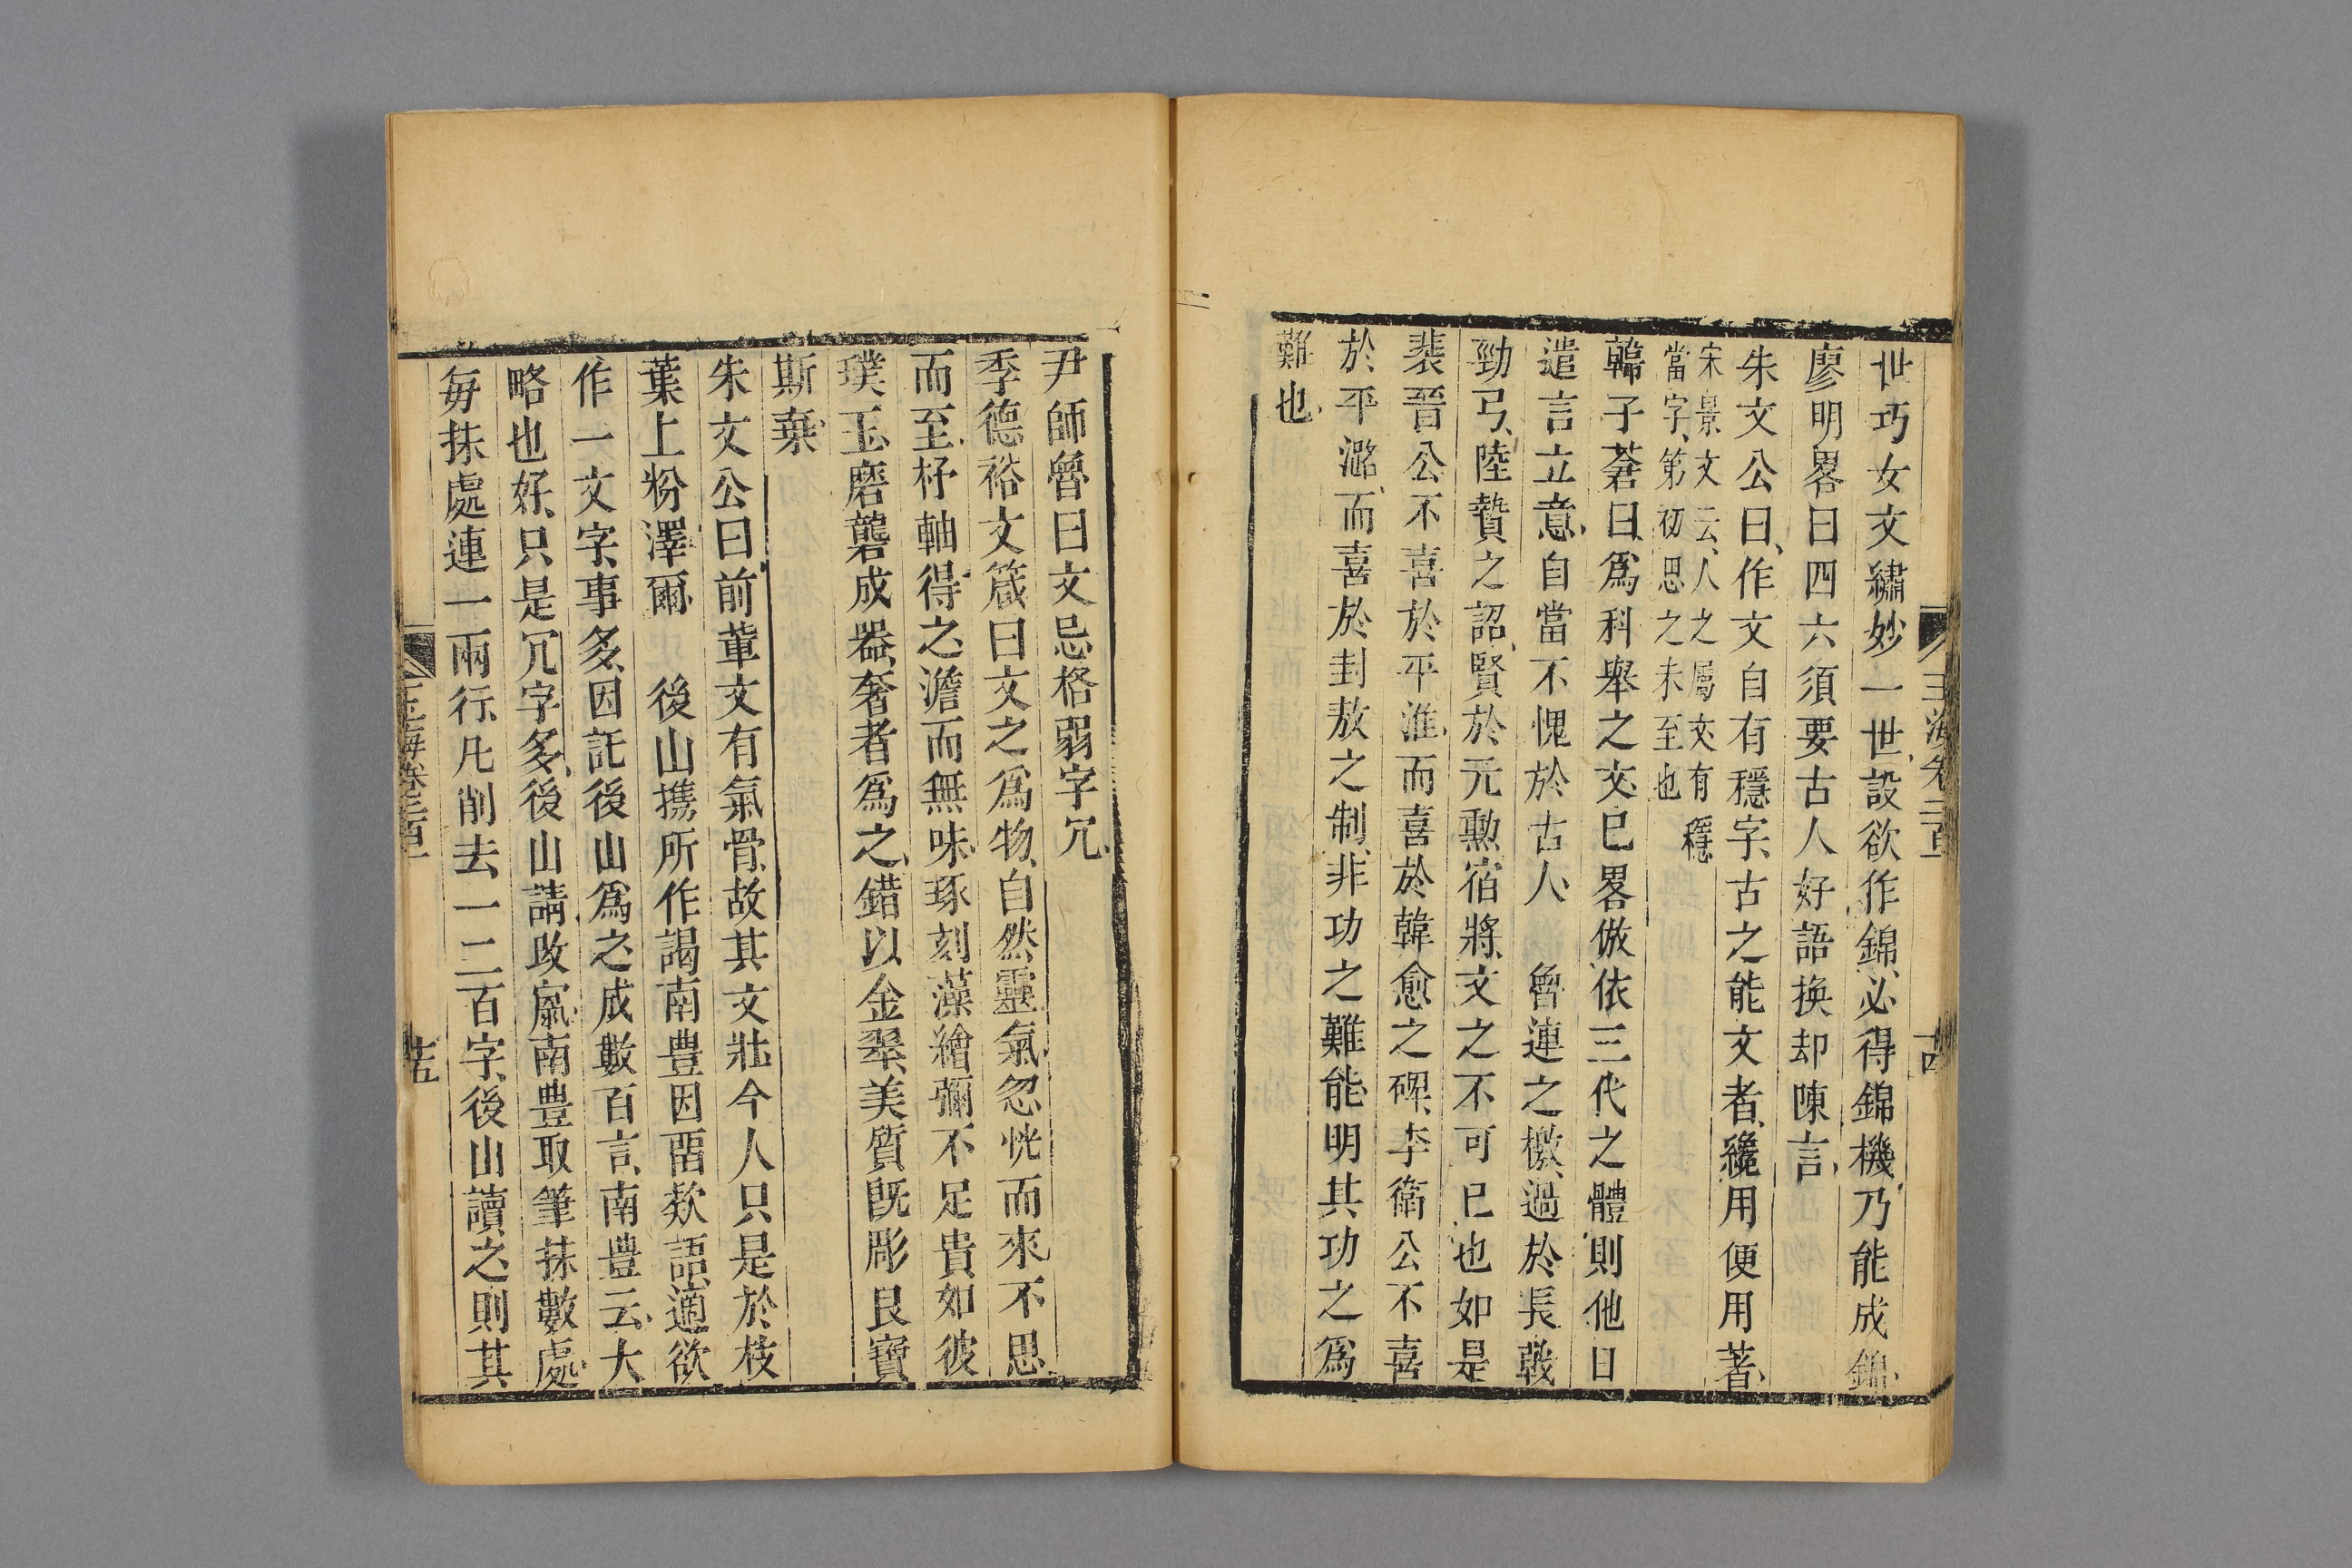 玉海卷二百一
十四
世巧女文繡妙一世設欲作錦必得錦機乃能成錦
廖明畧曰四六須要古人好語換却陳言
朱文公曰作文自有穩字古之能文者纔用便用著
宋景文云人之屬文有穩
當字第初思之未至也
韓子蒼曰爲科舉之文已畧倣依三代之體則他日
遣言立意自當不愧於古人 魯連之檄過於長戟
勁弓陸贄之詔賢於元勳宿將文之不可已也如是
裴晉公不喜於平淮而喜於韓愈之碑李衛公不喜
於平潞而喜於封敖之制非功之難能明其功之爲
難也
尹師魯曰文忌格弱字冗
季德裕文箴曰文之爲物自然靈氣忽恍而來不思
而至杼軸得之澹而無味琢刻藻繪彌不足貴如彼
璞玉磨礲成器奢者爲之錯以金翠美質旣彫艮寶
斯棄
朱文公曰前輩文有氣骨故其文壯今人只是於枝
葉上粉澤爾 後山携所作謁南豊因畱欵語適欲
作一文字事多因託後山爲之成數百言南豊云大
略也好只是冗字多後山請改竄南豊取筆抹數處
每抹處連一兩行凡削去一二百字後山讀之則其
玉海卷二百一
十五